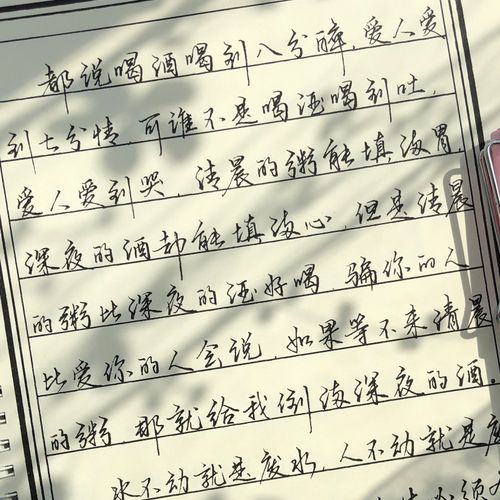 都说喝酒喝到八分醉，爱人爱
到七分情，可谁不是喝酒喝到吐，
爱人爱到哭，清晨的粥能填满胃，
深夜的酒却能填满心，但是清晨
的粥比深夜的酒好喝，骗你的人
比爱你的人会说，如果等不来清晨
的粥，那就给我倒满深夜的酒。
水不动就是废水，人不动就是废